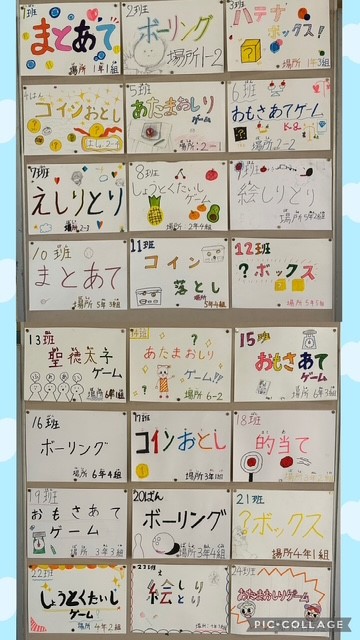 1班
まとあて
場所 1年1組
2班
ボーリング
場所1-2
3班
ハテナ
ボックス!
場所 1年3組
4はん
コインおとし
5班
あたまおしり
ゲーム
場所:2-1
6班
おもさあてゲーム
場所2-2
7班
えしりとり
場所 2-3
8班
しょうとくたいし
ゲーム
場所:2年4組
9班
絵しりとり
10班
まとあて
場所 5年3組
11班
コイン
落とし
場所
5年4組
12班
?ボックス
場所5年5組
13班
聖徳太子
ゲーム
場所6年1組
あたまおしり
ゲーム!?
場所 6-2
15班
おもさあて
ゲーム
場所 6年3組
16班
ボーリング
場所 6年4組
17班
コインおとし
場所 3年1組
18班
的当て
19班
おもさあて
ゲーム
場所 3年3組
20ぱん
ボーリング
場所3年4組
21班
?ボックス
場所4年1組
22班
しょうとくたいし
ゲーム
場所 4年2組
絵しりとり
24班
あたまおしりゲーム
PIC•COLLAGE